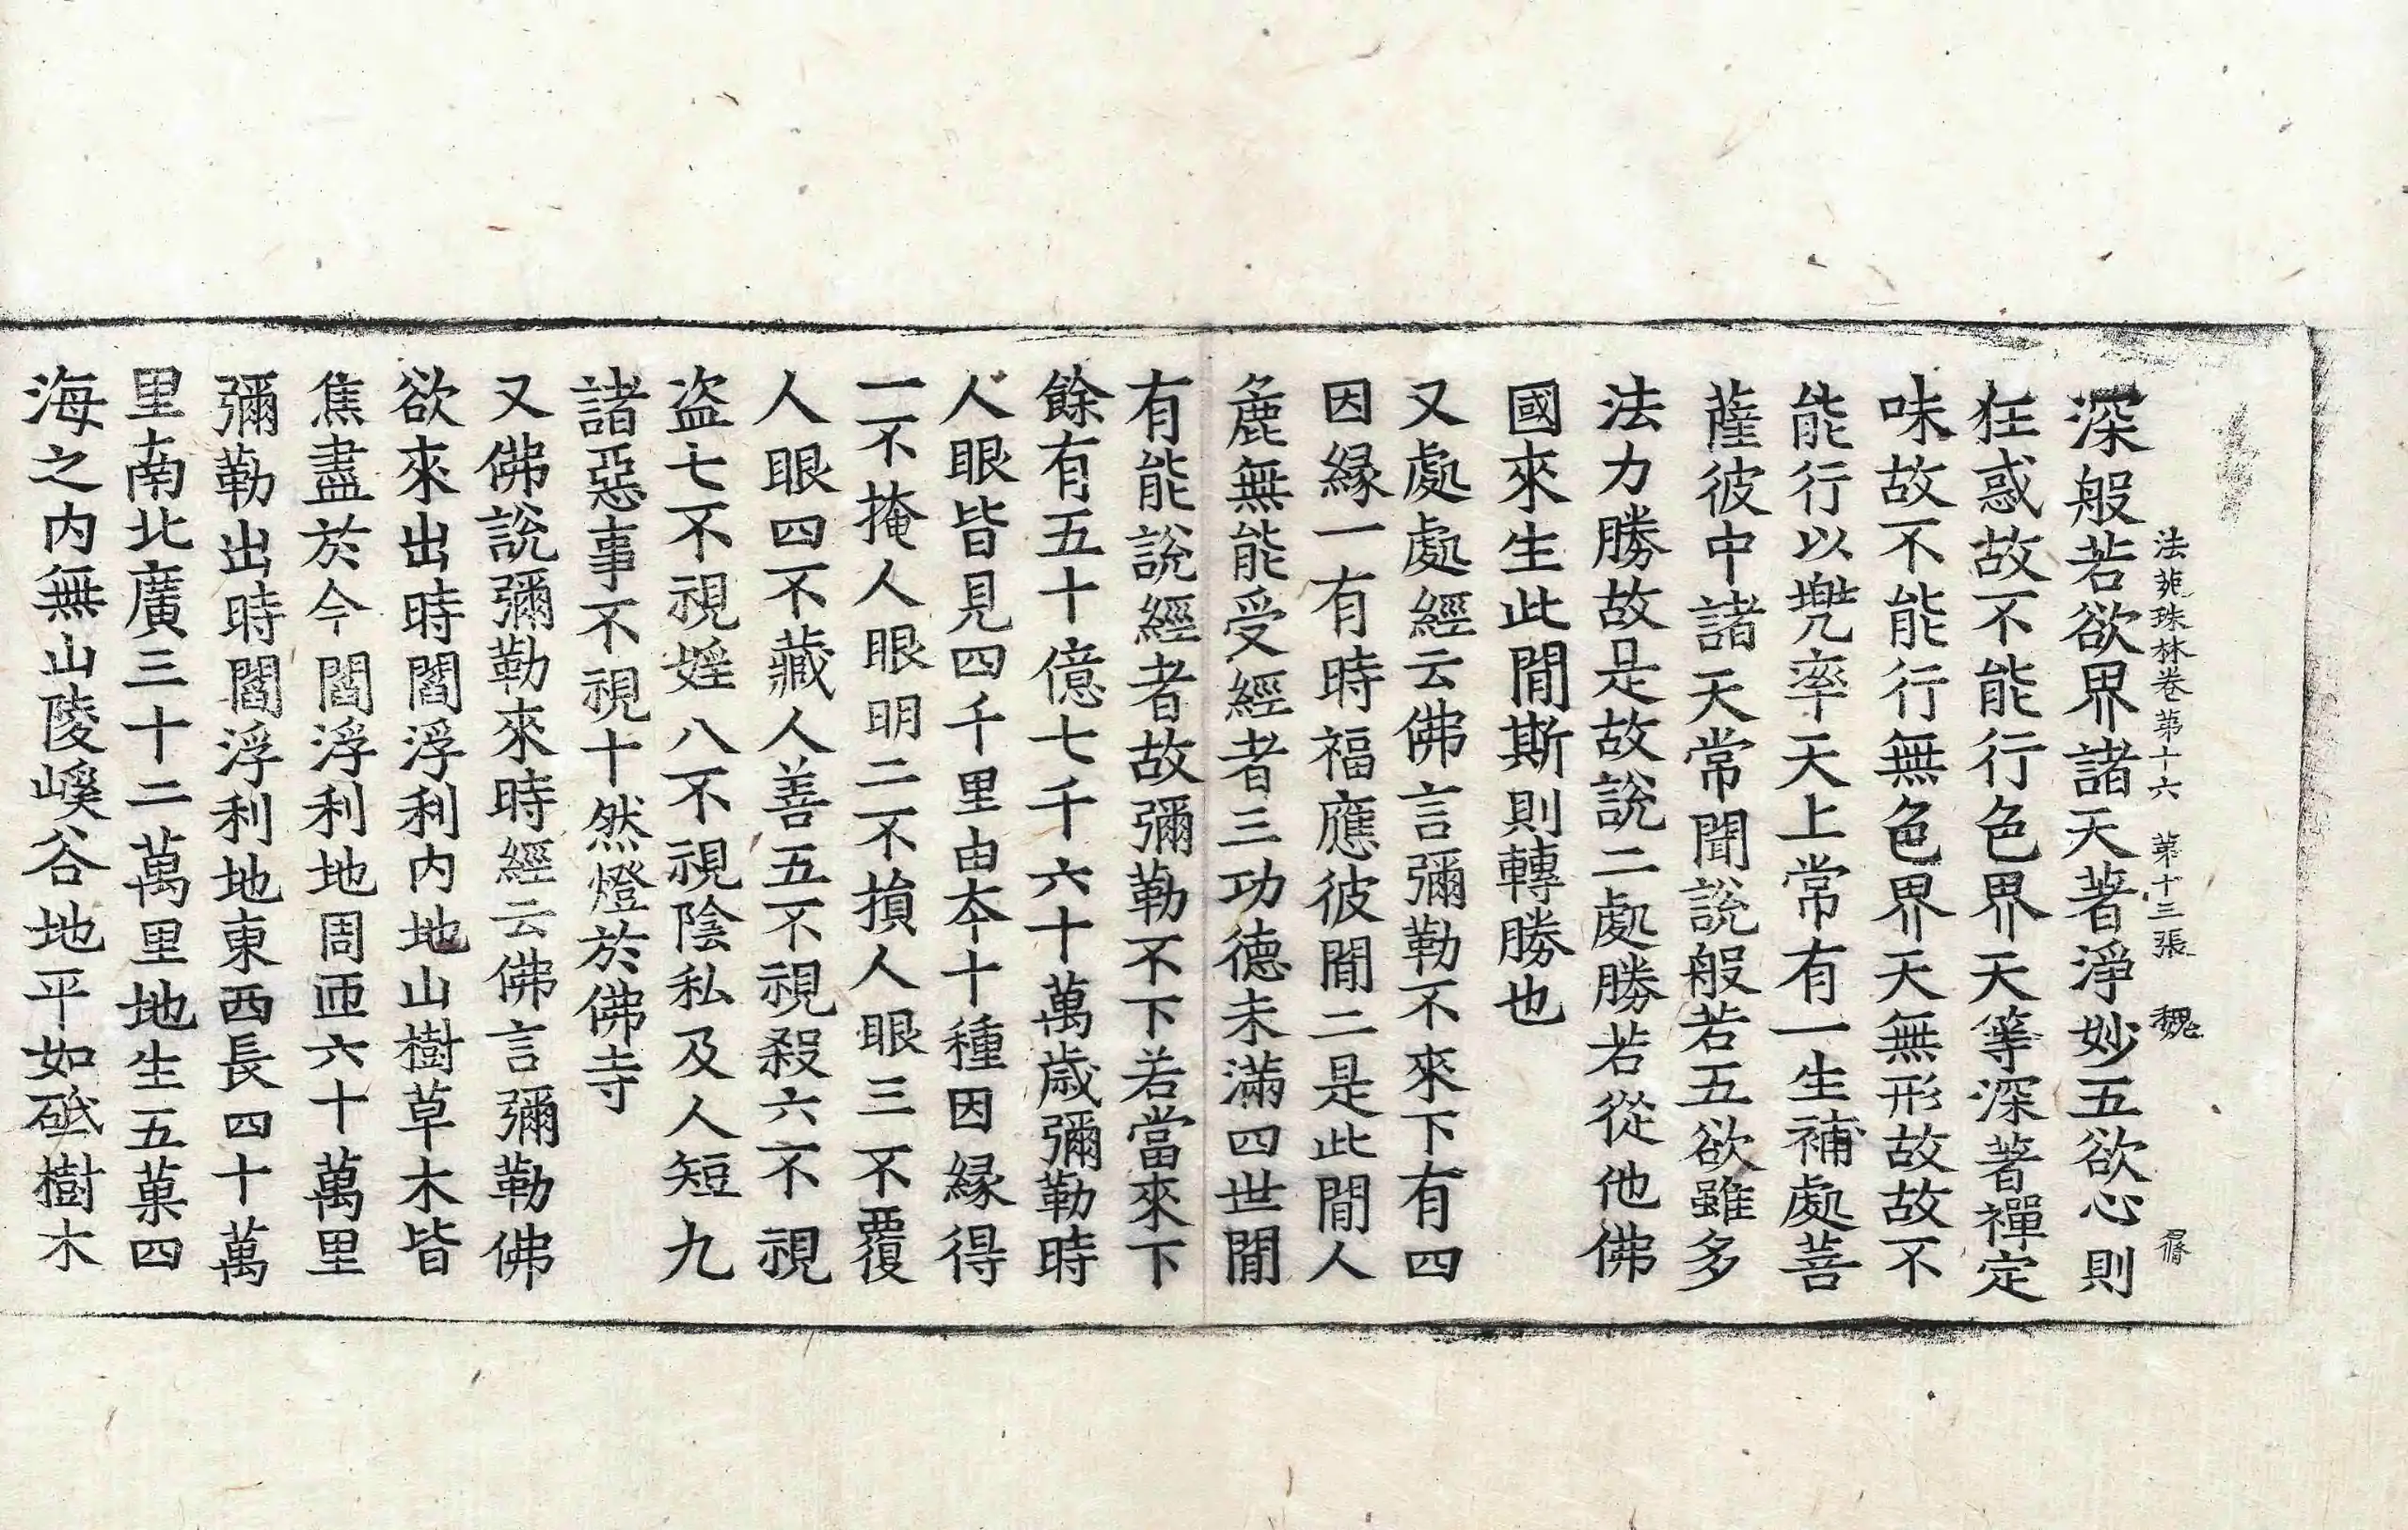 法苑珠林卷第十六 第十三張 魏
深般若欲界諸天著淨妙五欲心則
狂惑故不能行色界天等深著禪定
味故不能行無色界天無形故故不
能行以兠率天上常有一生補處菩
薩彼中諸天常聞說般若五欲雖多
法力勝故是故說二處勝若從他佛
國來生此閒斯則轉勝也
又處處經云佛言彌勒不來下有四
因緣一有時福應彼閒二是此閒人
麁無能受經者三功德未滿四世閒
有能說經者故彌勒不下若當來下
餘有五十億七千六十萬歲彌勒時
人眼皆見四千里由夲十種因緣得
一不掩人眼明二不損人眼三不覆
人眼四不藏人善五不視殺六不視
盜七不視婬八不視陰私及人短九
諸惡事不視十然燈於佛寺
又佛說彌勒來時經云佛言彌勒佛
欲來出時閻浮利內地山樹草木皆
焦盡於今閻浮利地周匝六十萬里
彌勒出時閻浮利地東西長四十萬
里南北廣三十二萬里地生五菓四
海之內無山陵嵠谷地平如砥樹木